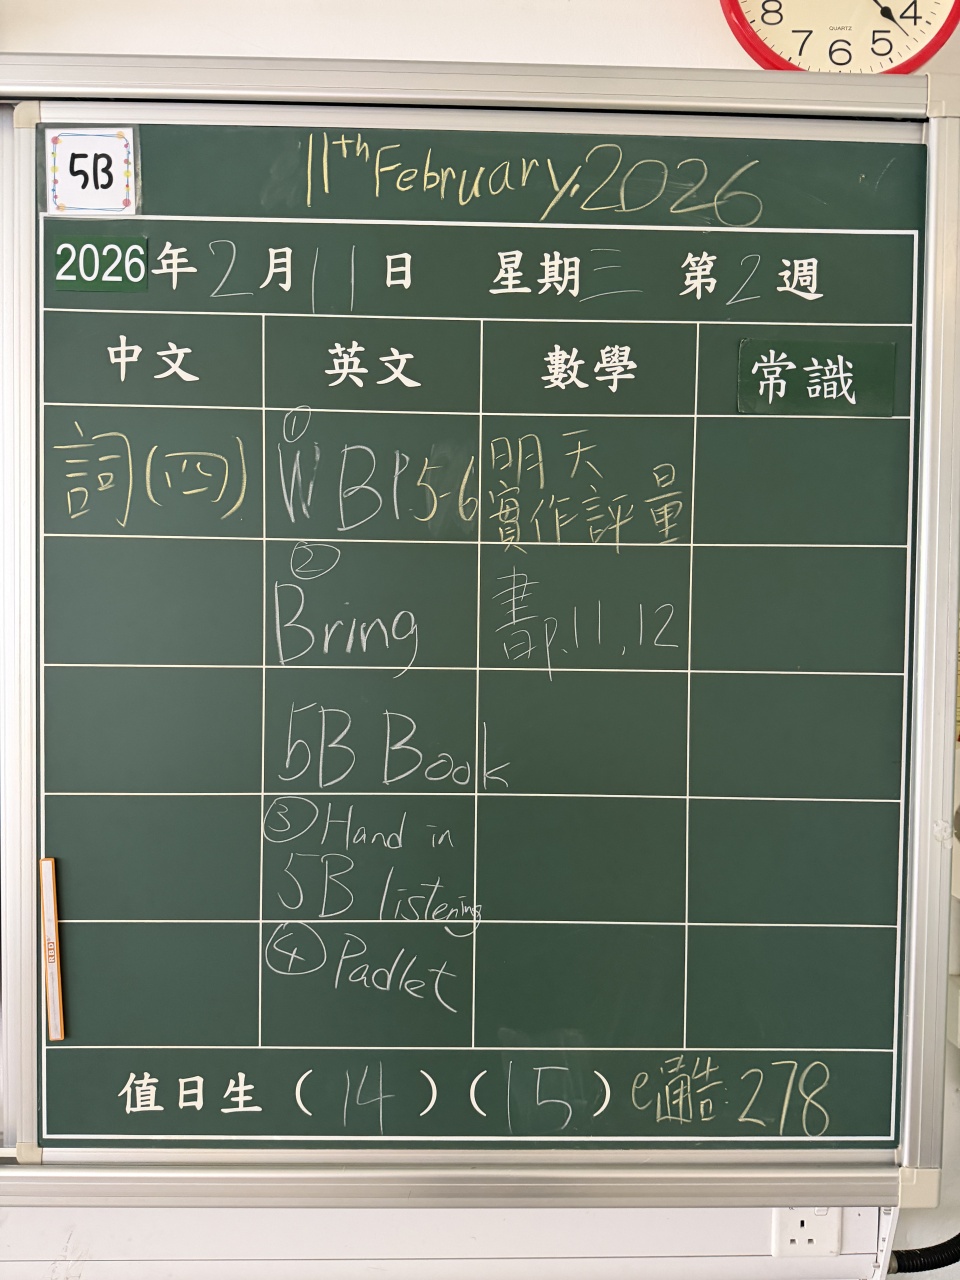 8 4
7 6 5
QUARTZ
5B
11th February, 2026
2026年2月11日 星期三 第2週
中文 英文 數學 常識
詞(四)
①
WB P.5-6
明天
實作評量
②
Bring
書P.11,12
5B Book
③ Hand in
5B listening
④ Padlet
值日生(14)(15) e通告:278